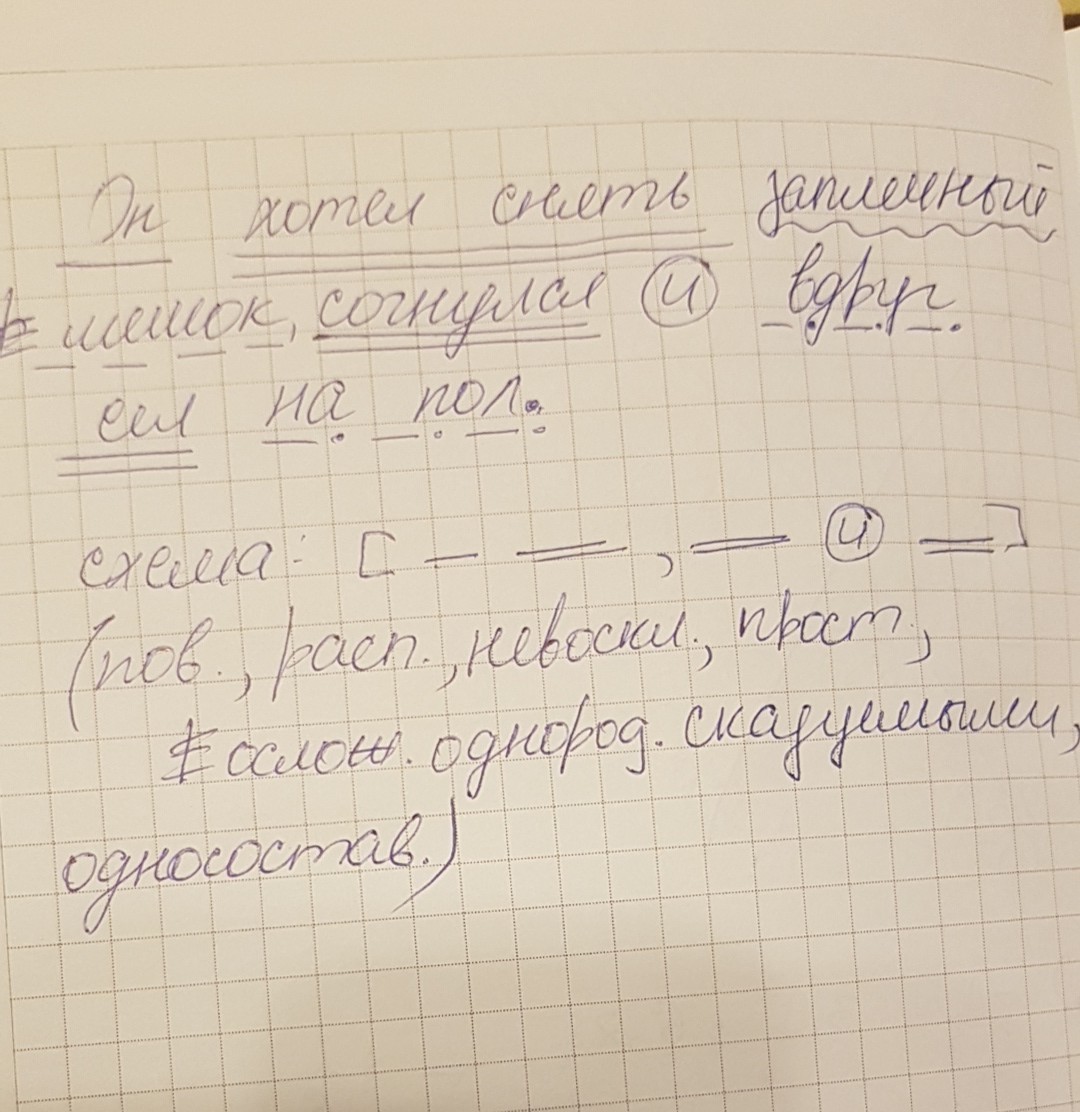 Он хотел снять заплечный
мешок, согнулся и вдруг
сел на пол.
схема: [ – = , = и = ]
(пов., расп., невоскл., прост.,
ослож. однород. сказуемыми,
односостав.)